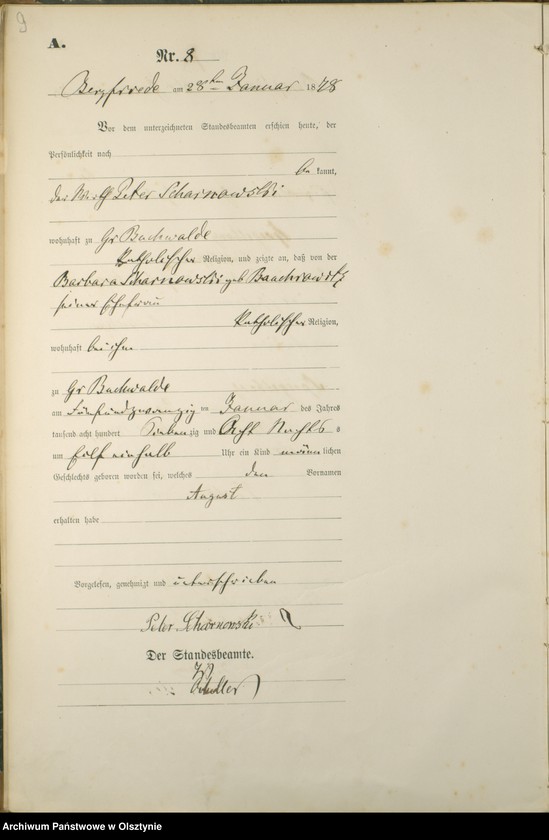 9
A.
Nr. 8
Bergfriede am 28ten Januar 1878
Vor dem unterzeichneten Standesbeamten erschien heute, der
Persönlichkeit nach
bekannt,
der Wirth Peter Scharnowski
wohnhaft zu Gr Buchwalde
katholischer Religion, und zeigte an, daß von der
Barbara Scharnowski geb
seiner Ehefrau
katholischer Religion,
wohnhaft bei ihm
zu Gr Buchwalde
am Fünfundzwanzig ten Januar des Jahres
tausend acht hundert Siebenzig und Acht Nachts
um Eilf einhalb Uhr ein Kind männlichen
Geschlechts geboren worden sei, welches den Vornamen
August
erhalten habe
Vorgelesen, genehmigt und unterschrieben
Peter Scharnowski
Der Standesbeamte.
Archiwum Państwowe w Olsztynie